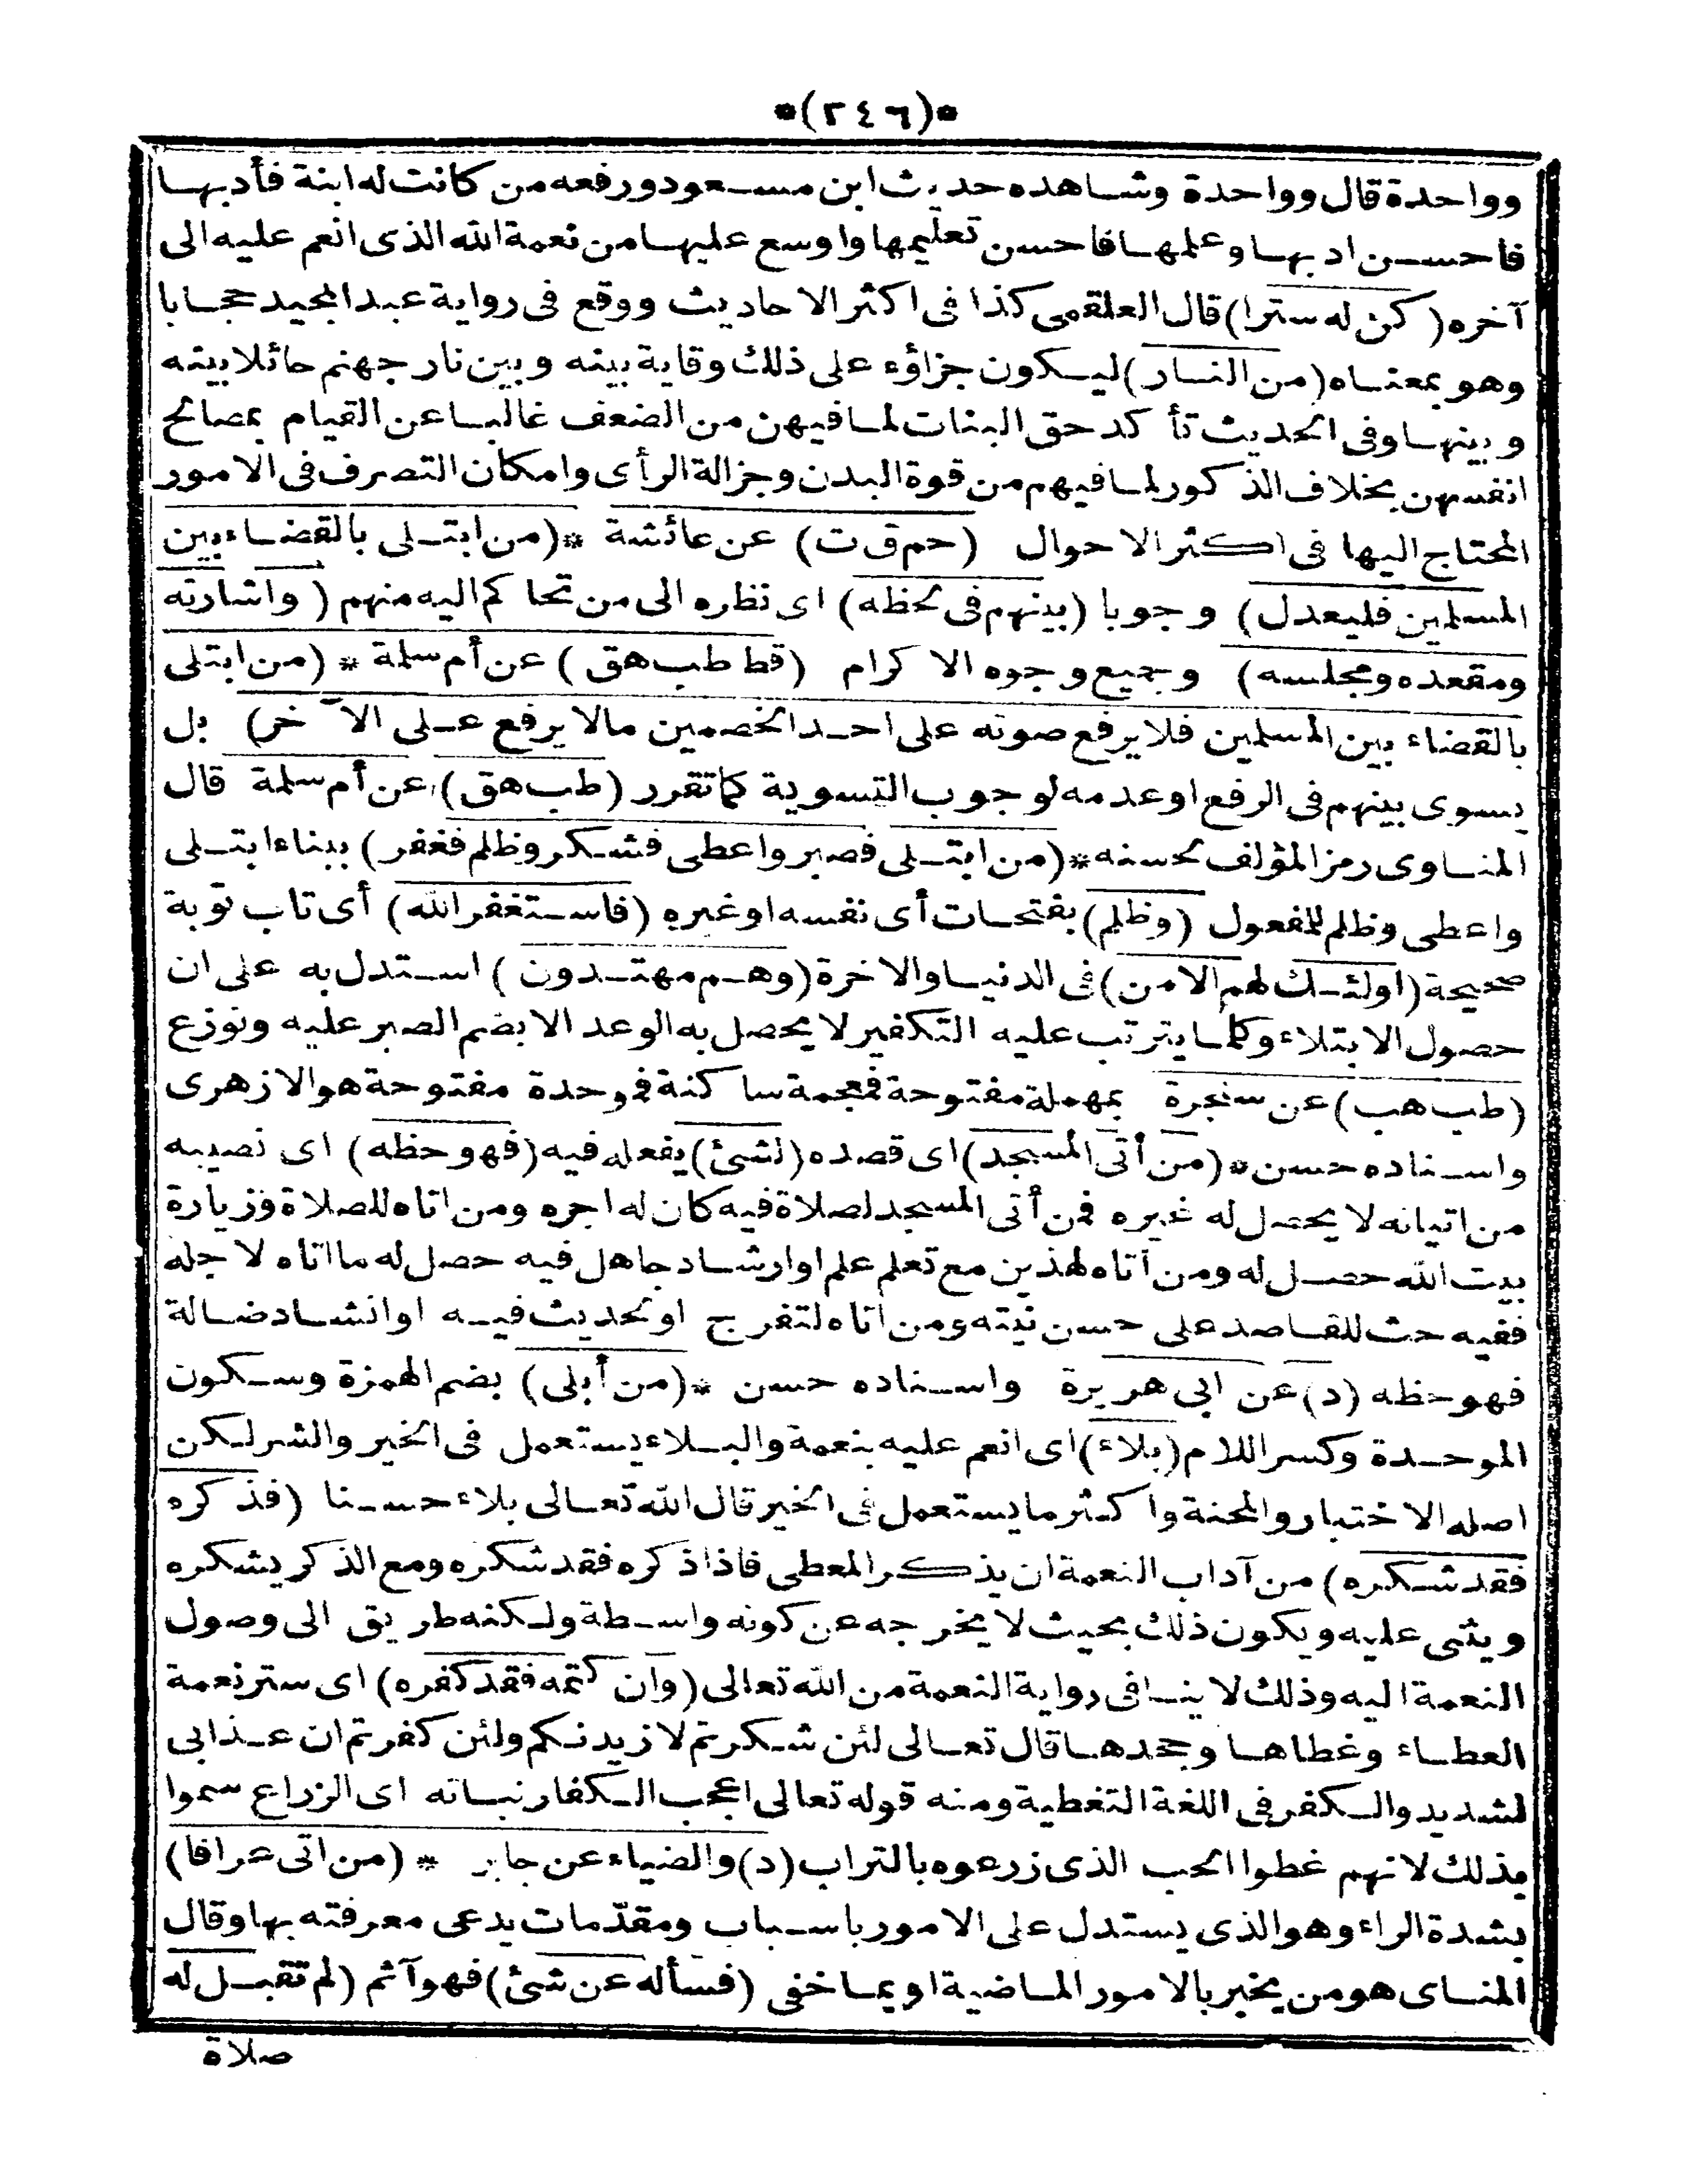 *(٢٤٦)*
وواحدة قال وواحدة وشاهده حديث ابن مسعود ورفعه من كانت له ابنة فأدبها
فاحسن ادبها وعلمها فاحسن تعليمها واوسع عليها من نعمة الله الذى انعم عليه الى
آخره (كن له سترا) قال العلقمى كذا فى اكثر الاحاديث ووقع فى رواية عبد المجيد حجابا
وهو بمعناه (من النار) ليكون جزاؤه على ذلك وقاية بينه وبين نار جهنم حائلا بينه
وبينها وفى الحديث تأكد حق البنات لما فيهن من الضعف غالبا عن القيام بمصالح
انفسهن بخلاف الذكور لما فيهم من قوة البدن وجزالة الرأى وامكان التصرف فى الامور
المحتاج اليها فى اكثر الاحوال (حم ق ت) عن عائشة * (من ابتلى بالقضاء بين
المسلمين فليعدل) وجوبا (بينهم فى لحظه) اى نظره الى من تحاكم اليه منهم (واشارته
ومقعده ومجلسه) وجميع وجوه الاكرام (قط طب هق) عن أم سلمة * (من ابتلى
بالقضاء بين المسلمين فلا يرفع صوته على احد الخصمين مالا يرفع على الآخر) بل
يسوى بينهم فى الرفع او عدمه لوجوب التسوية كما تقرر (طب هق) عن أم سلمة قال
المناوى رمز المؤلف لحسنه * (من ابتلى فصبر واعطى فشكر وظلم فغفر) ببناء ابتلى
واعطى وظلم للمفعول (وظلم) بفتحات أى نفسه او غيره (فاستغفر الله) أى تاب توبة
صحيحة (اولئك لهم الامن) فى الدنيا والاخرة (وهم مهتدون) استدل به على ان
حصول الابتلاء وكلما يترتب عليه التكفير لا يحصل به الوعد الا بضم الصبر عليه ونوزع
(طب هب) عن سخبرة بمهملة مفتوحة فمعجمة ساكنة فموحدة مفتوحة هو الازهرى
واسناده حسن * (من أتى المسجد) اى قصده (لشئ) يفعله فيه (فهو حظه) اى نصيبه
من اتيانه لا يحصل له غيره فمن أتى المسجد لصلاة فيه كان له اجره ومن اتاه للصلاة وزيارة
بيت الله حصل له ومن أتاه لهذين مع تعلم علم او ارشاد جاهل فيه حصل له ما اتاه لاجله
ففيه حث للقاصد على حسن نيته ومن اتاه لتفرج او لحديث فيه او انشاد ضالة
فهو حظه (د) عن ابى هريرة واسناده حسن * (من أبلى) بضم الهمزة وسكون
الموحدة وكسر اللام (بلاء) اى انعم عليه بنعمة والبلاء يستعمل فى الخير والشر لكن
اصله الاختبار والمحنة واكثر ما يستعمل فى الخير قال الله تعالى بلاء حسنا (فذكره
فقد شكره) من آداب النعمة ان يذكر المعطى فاذا ذكره فقد شكره ومع الذكر يشكره
ويثنى عليه ويكون ذلك بحيث لا يخرجه عن كونه واسطة ولكنه طريق الى وصول
النعمة اليه وذلك لا ينافى رواية النعمة من الله تعالى (وان كتمه فقد كفره) اى ستر نعمة
العطاء وغطاها وجحدها قال تعالى لئن شكرتم لازيدنكم ولئن كفرتم ان عذابى
لشديد والكفر فى اللغة التغطية ومنه قوله تعالى اعجب الكفار نباته اى الزراع سموا
بذلك لانهم غطوا الحب الذى زرعوه بالتراب (د) والضياء عن جابر * (من اتى عرافا)
بشدة الراء وهو الذى يستدل على الامور باسباب ومقدّمات يدعى معرفته بها وقال
المناى هو من يخبر بالامور الماضية او بما خفى (فسأله عن شئ) فهو آثم (لم تقبل له
صلاة